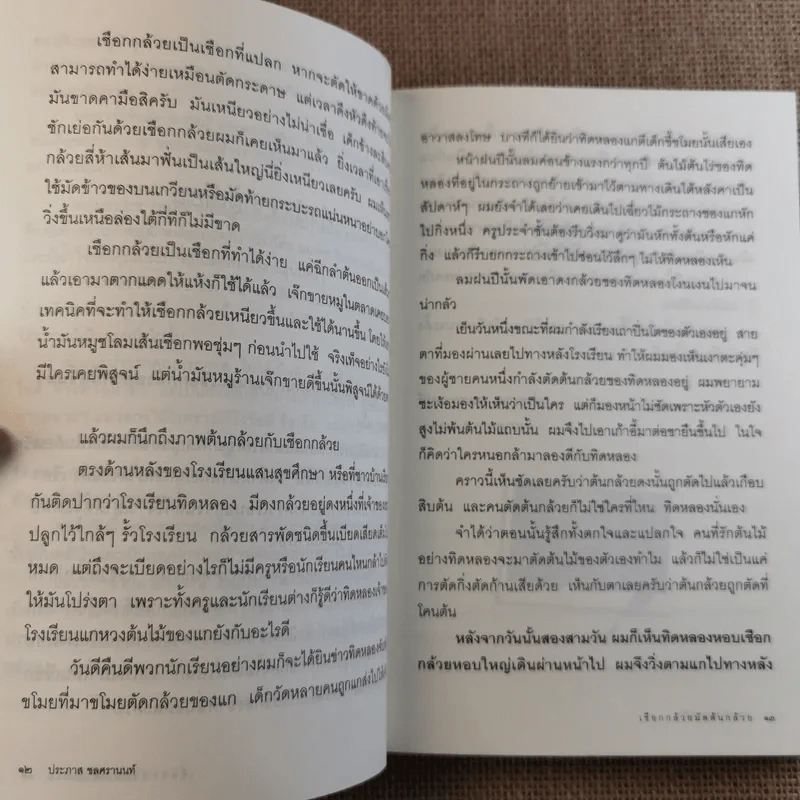 เชือกกล้วยเป็นเชือกที่แปลก หากจะตัดให้ขาดด้วย
สามารถทำได้ง่ายเหมือนตัดกระดาษ แต่เวลาดึงหัวดึงท้าย
มันขาดคามือสิครับ มันเหนียวอย่างไม่น่าเชื่อ เด็กช้าง
ชักเย่อกันด้วยเชือกกล้วยผมก็เคยเห็นมาแล้ว ยิ่งเวลาที่เขา
กล้วยสี่ห้าเส้นมาฟั่นเป็นเส้นใหญ่นี่ยิ่งเหนียวเลยครับ ผมเห็น
ใช้มัดข้าวของบนเกวียนหรือมัดท้ายกระบะรถแน่นหนาอย่า
วิ่งขึ้นเหนือล่องใต้กี่ทีก็ไม่มีขาด
เชือกกล้วยเป็นเชือกที่ทำได้ง่าย แค่ฉีกลำต้นออกเป็น
แล้วเอามาตากแดดให้แห้งก็ใช้ได้แล้ว เจ๊กขายหมูในตลาดเคย
เทคนิคที่จะทำให้เชือกกล้วยเหนียวขึ้นและใช้ได้นานขึ้น โดย
น้ำมันหมูชโลมเส้นเชือกพอชุ่มๆ ก่อนนำไปใช้ จริงเท็จอย่างไร
มีใครเคยพิสูจน์ แต่น้ำมันหมูร้านเจ๊กขายดีขึ้นนั้นพิสูจน์ได้ด้วย
แล้วผมก็นึกถึงภาพต้นกล้วยกับเชือกกล้วย
ตรงด้านหลังของโรงเรียนแสนสุขศึกษา หรือที่ชาวบ้าน
กันติดปากว่าโรงเรียนทิดหลอง มีดงกล้วยอยู่ดงหนึ่งที่เจ้าของ
ปลูกไว้ใกล้ๆ รั้วโรงเรียน กล้วยสารพัดชนิดขึ้นเบียดเสียด
หมด แต่ถึงจะเบียดอย่างไรก็ไม่มีครูหรือนักเรียนคนไหนกล้าไป
ให้มันโปร่งตา เพราะทั้งครูและนักเรียนต่างก็รู้ดีว่าทิดหลองเจ้าข
โรงเรียนแกหวงต้นไม้ของแกยังกับอะไรดี
วันดีคืนดีพวกนักเรียนอย่างผมก็จะได้ยินข่าวทิดหลอง
ขโมยที่มาขโมยตัดกล้วยของแก เด็กวัดหลายคนถูกแกส่งไป
๑๒ ประภาส ชลศรานนท์
อาวาสลงโทษ บางทีก็ได้ยินว่าทิดหลองแกตีเด็กขี้ขโมยนั้นเสียเอง
หน้าฝนปีนั้นลมค่อนข้างแรงกว่าทุกปี ต้นไม้ต้นไร่ของทิด
หลองที่อยู่ในกระถางถูกย้ายเข้ามาไว้ตามทางเดินใต้หลังคาเป็น
สัปดาห์ๆ ผมยังจำได้เลยว่าเคยเดินไปเฉี่ยวไม้กระถางของแกหัก
ไปกิ่งหนึ่ง ครูประจำชั้นต้องรีบวิ่งมาดูว่ามันหักทั้งต้นหรือหักแค่
กิ่ง แล้วก็รีบยกกระถางเข้าไปซ่อนไว้ลึกๆ ไม่ให้ทิดหลองเห็น
ลมฝนปีนั้นพัดเอาดงกล้วยของทิดหลองโงนเงนไปมาจน
น่ากลัว
เย็นวันหนึ่งขณะที่ผมกำลังเรียงเถาปิ่นโตของตัวเองอยู่ สาย
ตาที่มองผ่านเลยไปทางหลังโรงเรียน ทำให้ผมมองเห็นเงาตะคุ่มๆ
ของผู้ชายคนหนึ่งกำลังตัดต้นกล้วยของทิดหลองอยู่ ผมพยายาม
ชะเง้อมองให้เห็นว่าเป็นใคร แต่ก็มองหน้าไม่ชัดเพราะหัวตัวเองยัง
สูงไม่พ้นต้นไม้แถบนั้น ผมจึงไปเอาเก้าอี้มาต่อขายืนขึ้นไป ในใจ
ก็คิดว่าใครหนอกล้ามาลองดีกับทิดหลอง
คราวนี้เห็นชัดเลยครับว่าต้นกล้วยดงนั้นถูกตัดไปแล้วเกือบ
สิบต้น และคนตัดต้นกล้วยก็ไม่ใช่ใครที่ไหน ทิดหลองนั่นเอง
จำได้ว่าตอนนั้นรู้สึกทั้งตกใจและแปลกใจ คนที่รักต้นไม้
อย่างทิดหลองจะมาตัดต้นไม้ของตัวเองทำไม แล้วก็ไม่ใช่เป็นแค่
การตัดกิ่งตัดก้านเสียด้วย เห็นกับตาเลยครับว่าต้นกล้วยถูกตัดที่
โคนต้น
หลังจากวันนั้นสองสามวัน ผมก็เห็นทิดหลองหอบเชือก
กล้วยหอบใหญ่เดินผ่านหน้าไป ผมจึงวิ่งตามแกไปทางหลัง
เชือกกล้วยมัดต้นกล้วย ๑๓